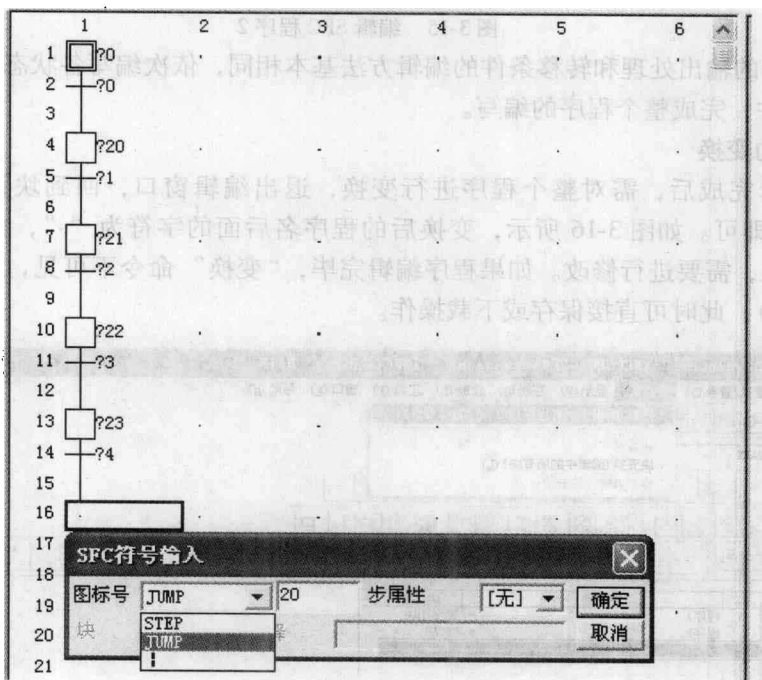 1 2 3 4 5 6
1 ?0
2 ?0
3
4 ?20
5 ?1
6
7 ?21
8 ?2
9
10 ?22
11 ?3
12
13 ?23
14 ?4
15
16
17
18
19
20
21
SFC符号输入
图标号 JUMP 20 步属性 [无] 确定
块 STEP 取消
JUMP